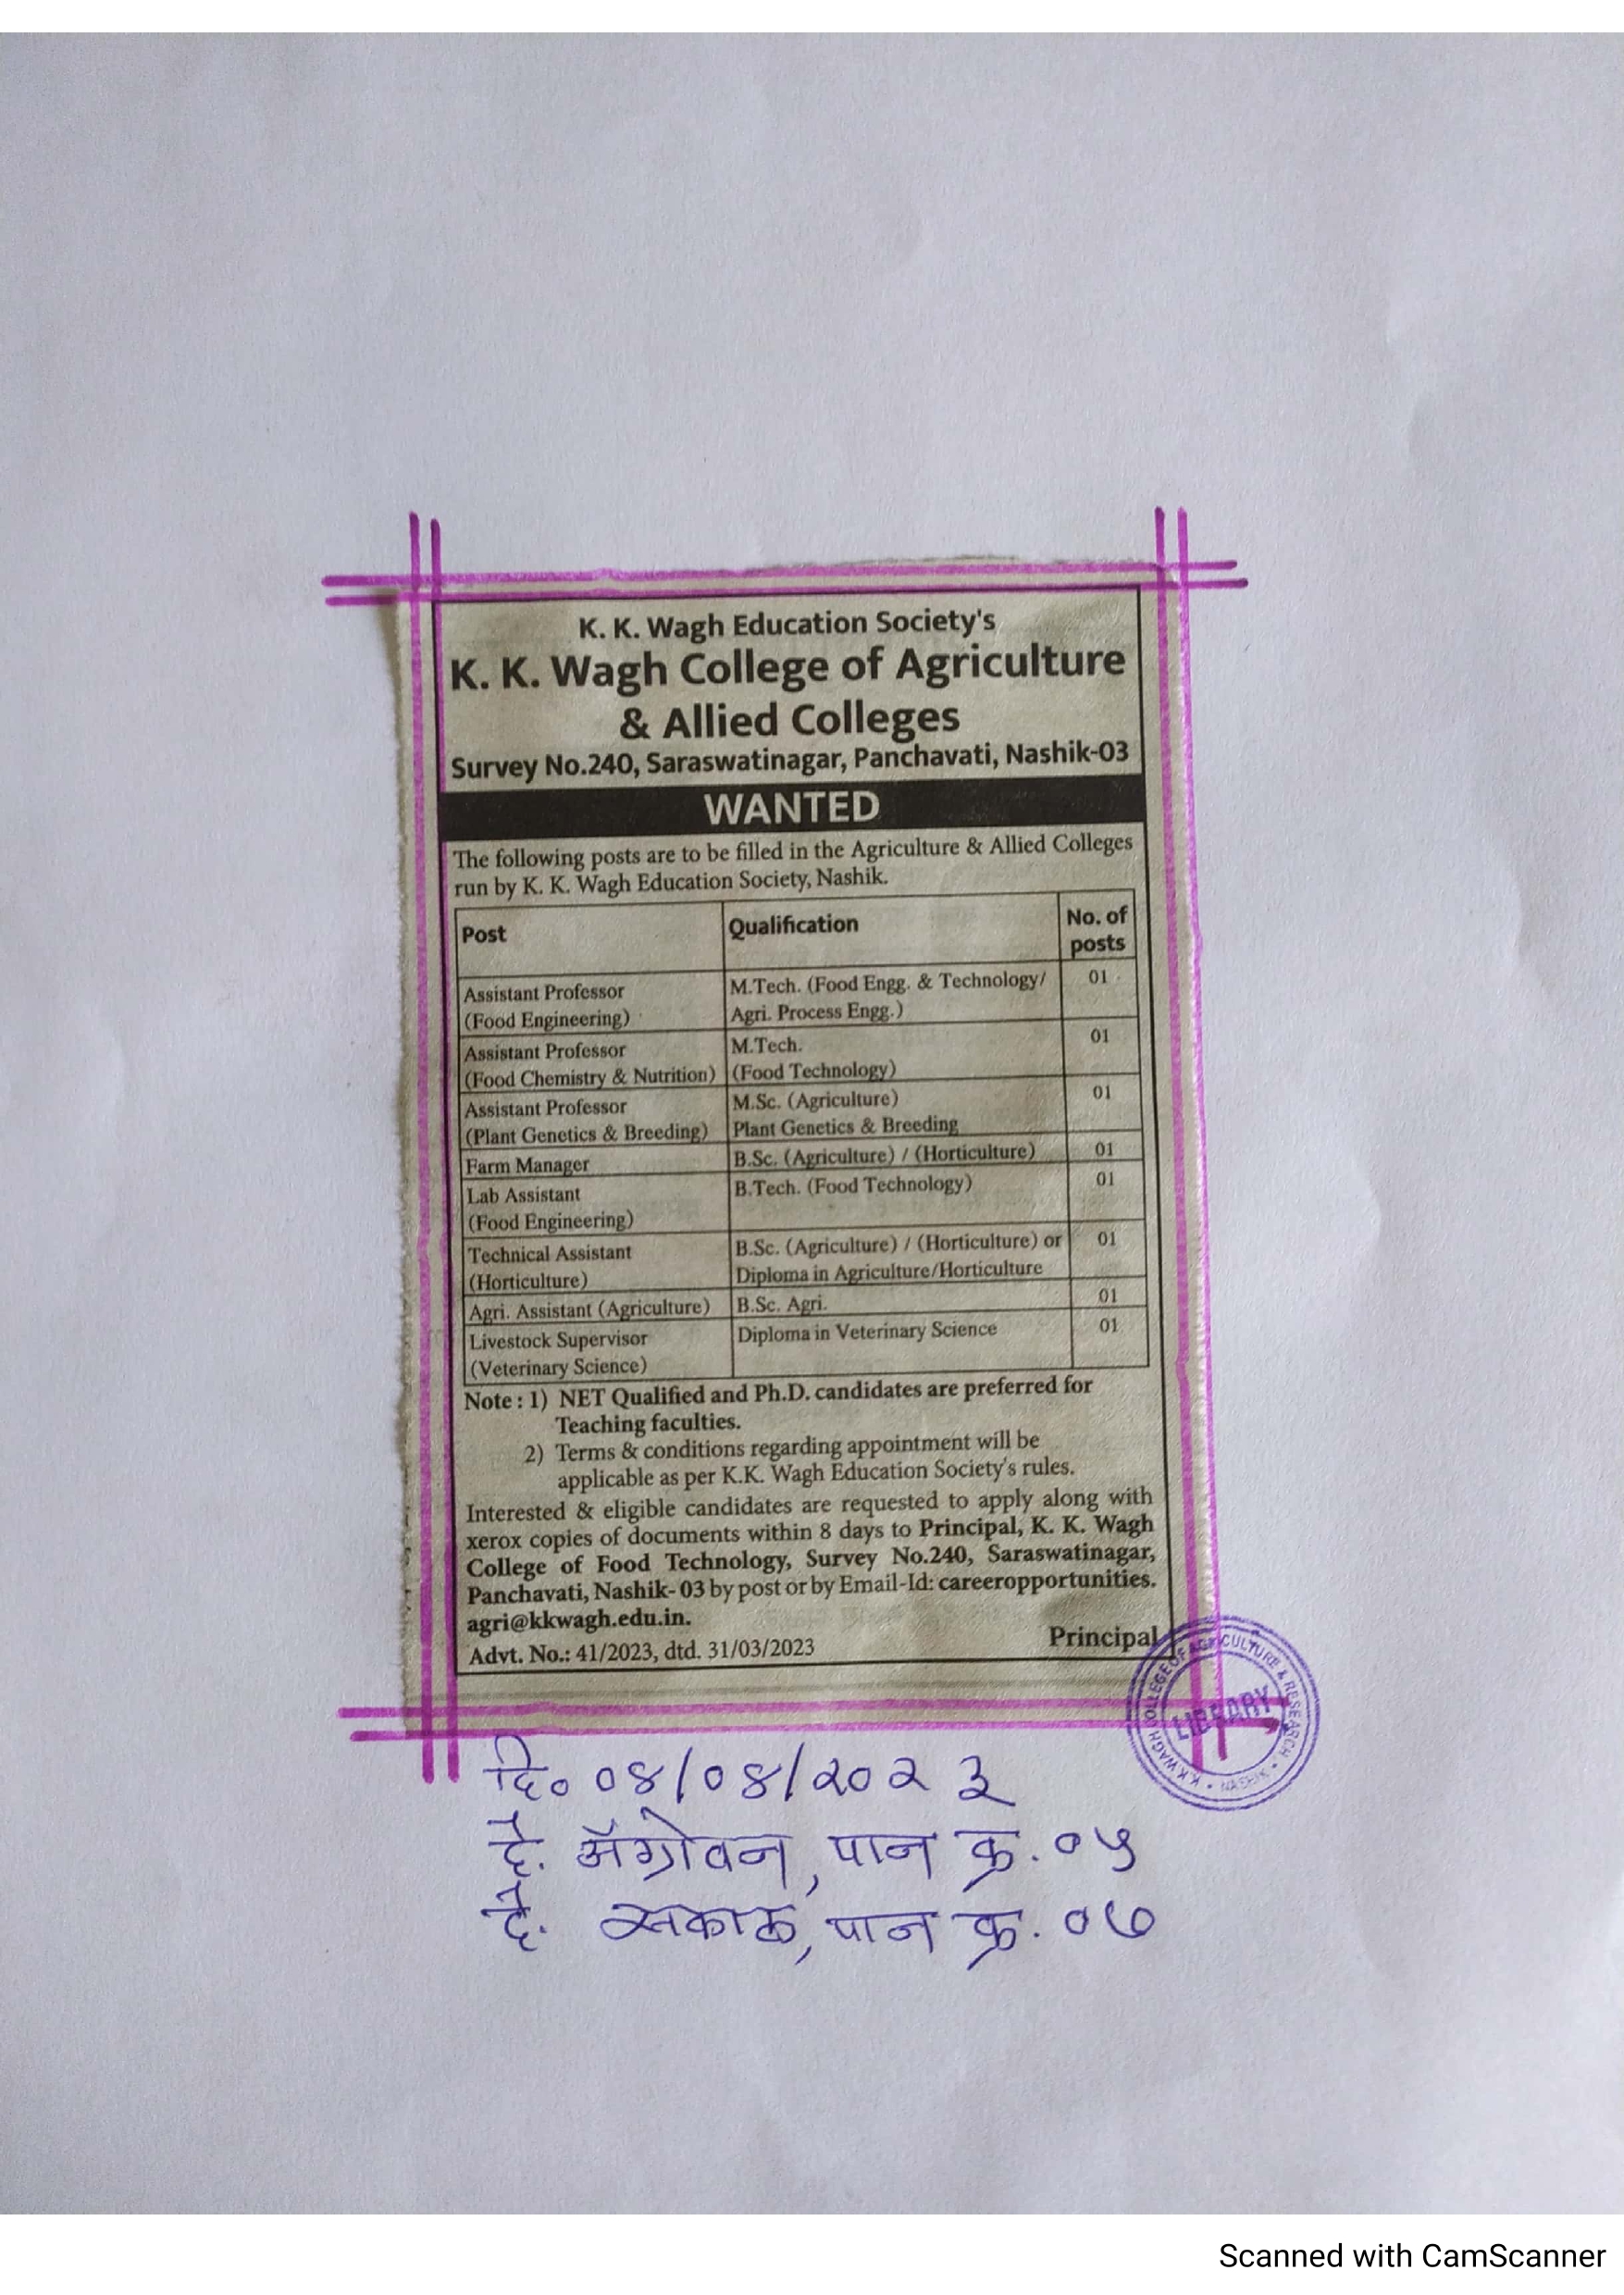 K. K. Wagh Education Society's
K. K. Wagh College of Agriculture
& Allied Colleges
Survey No.240, Saraswatinagar, Panchavati, Nashik-03
WANTED
The following posts are to be filled in the Agriculture & Allied Colleges
run by K. K. Wagh Education Society, Nashik.
Post Qualification No. of posts
Assistant Professor M.Tech. (Food Engg. & Technology/ 01
(Food Engineering) Agri. Process Engg.)
Assistant Professor M.Tech. 01
(Food Chemistry & Nutrition) (Food Technology)
Assistant Professor M.Sc. (Agriculture) 01
(Plant Genetics & Breeding) Plant Genetics & Breeding
Farm Manager B.Sc. (Agriculture) / (Horticulture) 01
Lab Assistant B.Tech. (Food Technology) 01
(Food Engineering)
Technical Assistant B.Sc. (Agriculture) / (Horticulture) or 01
(Horticulture) Diploma in Agriculture/Horticulture
Agri. Assistant (Agriculture) B.Sc. Agri. 01
Livestock Supervisor Diploma in Veterinary Science 01
(Veterinary Science)
Note : 1) NET Qualified and Ph.D. candidates are preferred for
Teaching faculties.
2) Terms & conditions regarding appointment will be
applicable as per K.K. Wagh Education Society's rules.
Interested & eligible candidates are requested to apply along with
xerox copies of documents within 8 days to Principal, K. K. Wagh
College of Food Technology, Survey No.240, Saraswatinagar,
Panchavati, Nashik- 03 by post or by Email-Id: careeropportunities.
agri@kkwagh.edu.in.
Principal
Advt. No.: 41/2023, dtd. 31/03/2023
K.K.WAGH COLLEGE OF AGRICULTURE & RESEARCH • NASHIK •
LIBRARY
दि० ०४/०४/२०२३
दै. ॲग्रोवन, पान क्र. ०५
दै. सकाळ, पान क्र. ०७
Scanned with CamScanner